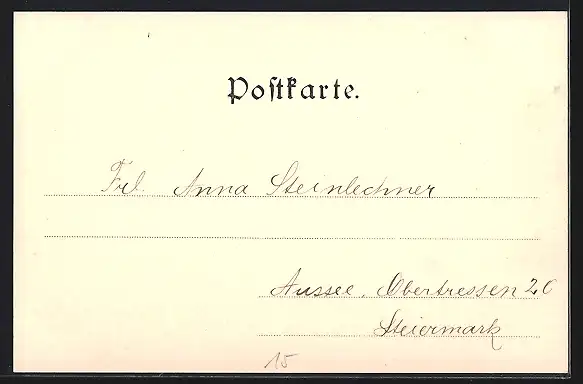 Postkarte.
Frl. Anna Steinlechner
Aussee, Obertressen 20
Steiermark
15